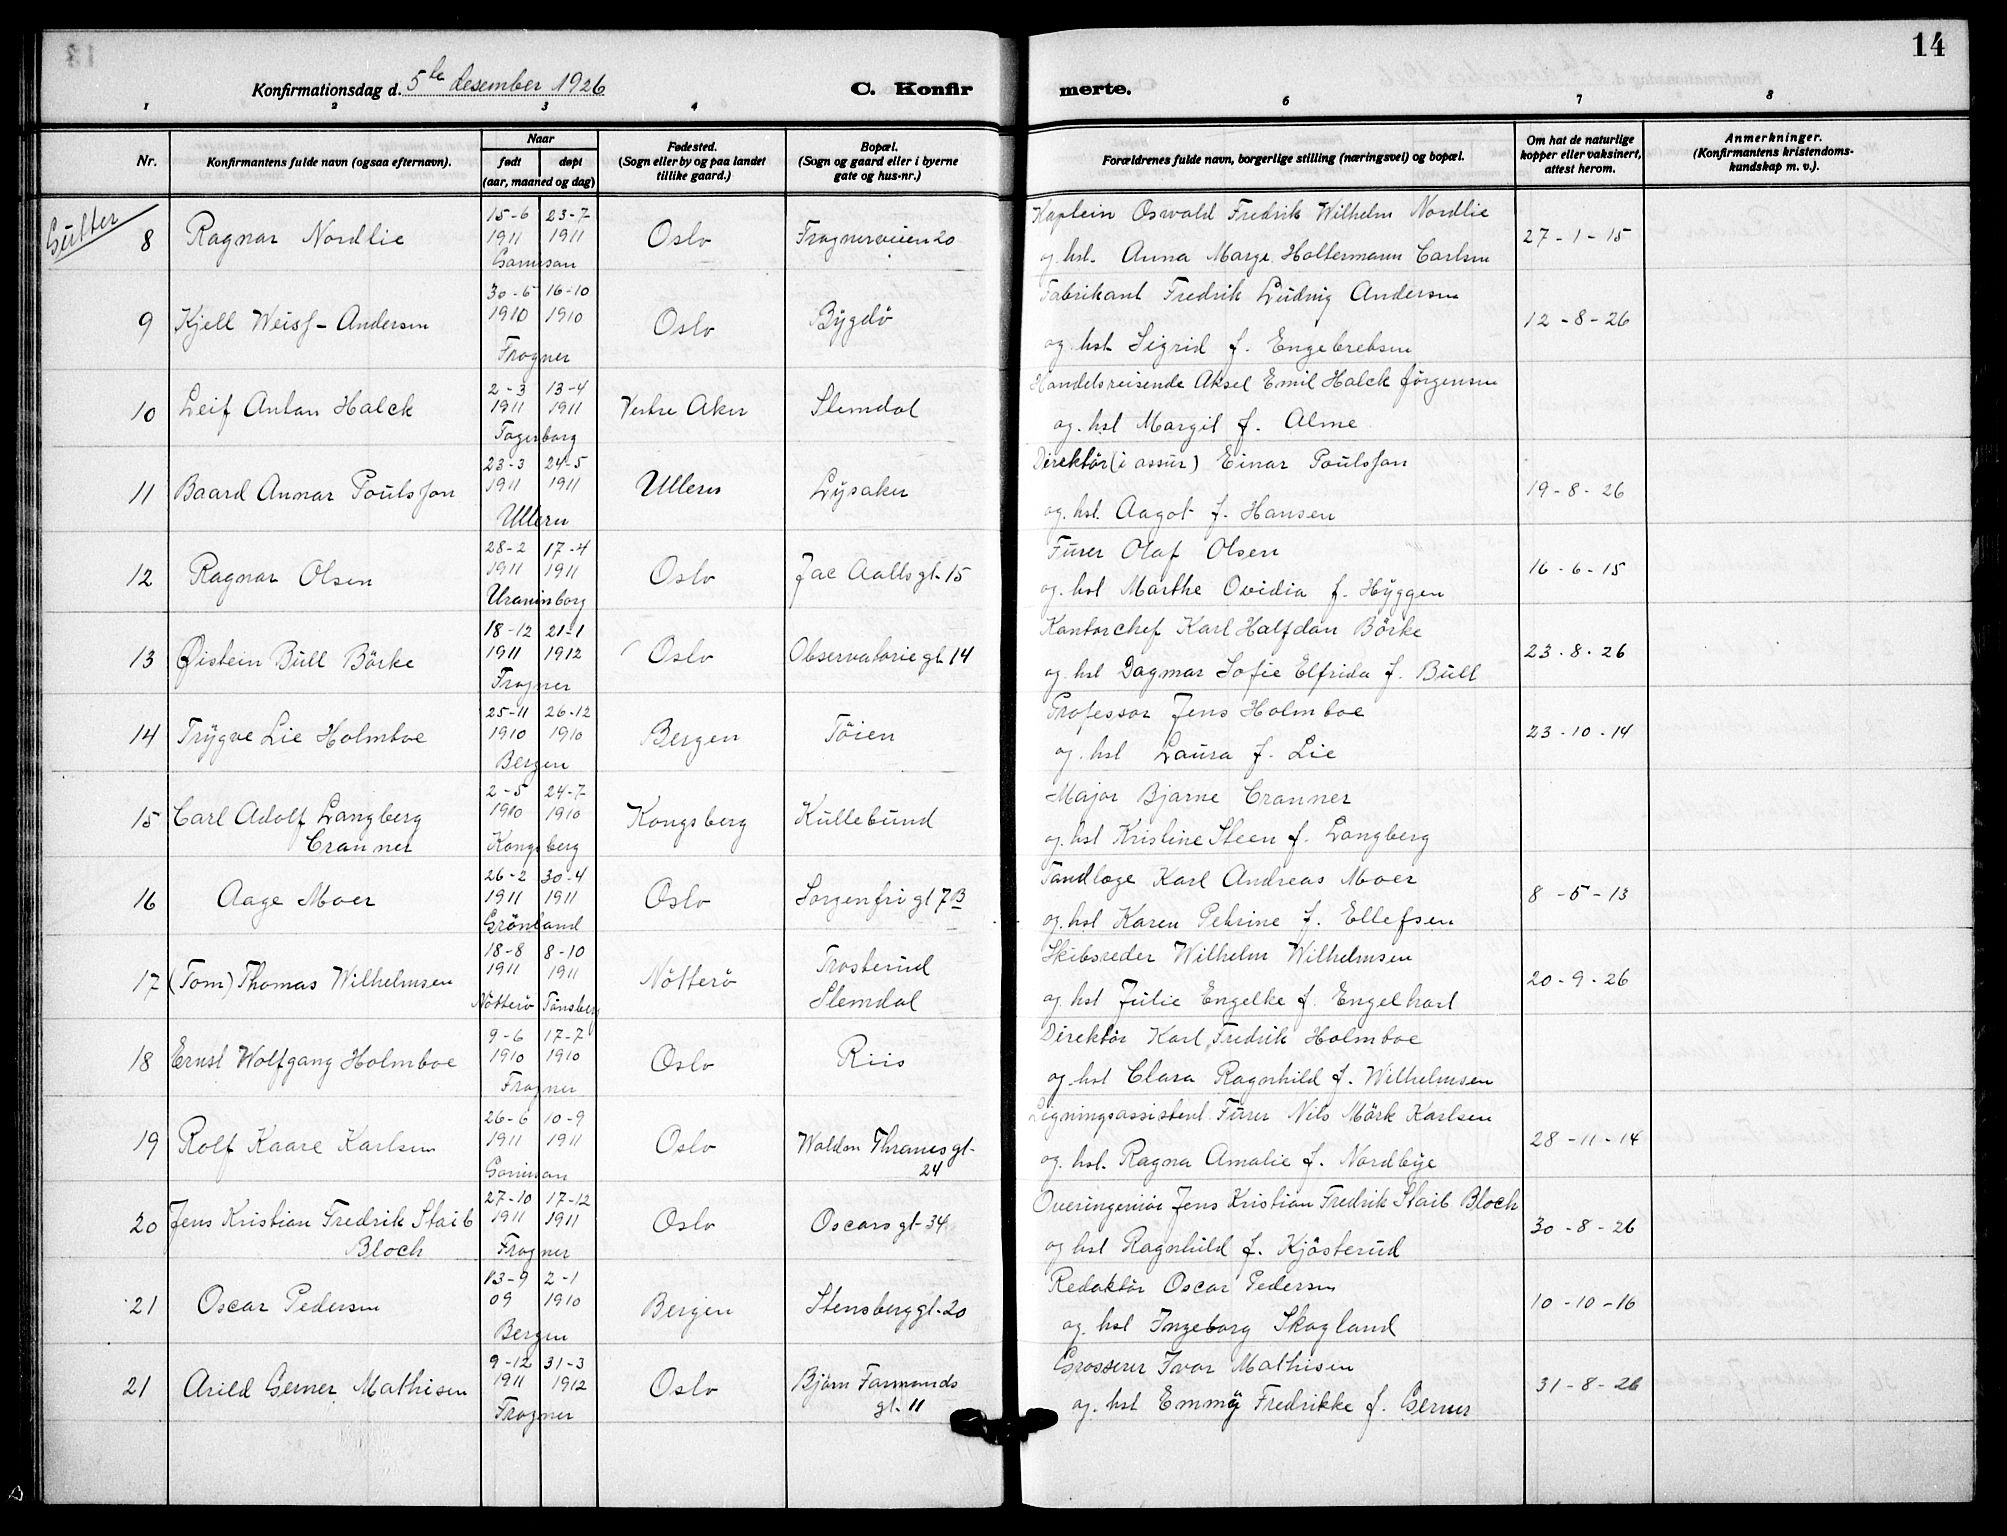 14
Konfirmationsdag d. 5te desember 1926
C. Konfirmerte.
1 2 3 4 5 6 7 8
Nr. Konfirmantens fulde navn (ogsaa efternavn). Naar født døpt (aar, maaned og dag) Fødested. (Sogn eller by og paa landet tillike gaard.) Bopæl. (Sogn og gaard eller i byerne gate og hus-nr.) Forældrenes fulde navn, borgerlige stilling (næringsvei) og bopæl. Om hat de naturlige kopper eller vaksinert, attest herom. Anmerkninger. (Konfirmantens kristendoms-kundskap m. v.).
Gutter
8 Ragnar Nordlie 15-6 1911 23-7 1911 Garnison Oslo Frognerveien 20 Kaptein Oswald Fredrik Wilhelm Nordlie
og hst. Anna Marge Holtermann Carlsen 27-1-15
9 Kjell Weisf-Andersen 30-6 1910 16-10 1910 Frogner Oslo Bygdö Fabrikant Fredrik Ludvig Andersen
og hst Sigrid f. Engebretsen 12-8-26
10 Leif Anton Halck 2-3 1911 13-4 1911 Fagerborg Vestre Aker Slemdal Handelsreisende Aksel Emil Halck Jörgensen
og hst Margit f. Alme
11 Baard Annar Poulsson 23-3 1911 24-5 1911 Ullern Ullern Lysaker Direktör (i assur) Einar Poulsson
og hst. Aagot f. Hansen 19-8-26
12 Ragnar Olsen 28-2 1911 17-4 1911 Uranienborg Oslo Jac Aalls gt. 15 Furer Olaf Olsen
og hst Marthe Ovidia f. Hyggen 16-6-15
13 Øistein Bull Börke 18-12 1911 21-1 1912 Frogner Oslo Observatorie gt. 14 Kontorchef Karl Halfdan Börke
og hst Dagmar Sofie Elfrida f. Bull 23-8-26
14 Trygve Lie Holmboe 25-11 1910 26-12 1910 Bergen Bergen Töien Professor Jens Holmboe
og hst Laura f. Lie 23-10-14
15 Carl Adolf Langberg Cranner 2-5 1910 24-7 1910 Kongsberg Kongsberg Kullebund Major Bjarne Cranner
og hst Kristine Steen f. Langberg
16 Aage Moer 26-2 1911 30-4 1911 Grönland Oslo Sorgenfri gt 7B Tandlæge Karl Andreas Moer
og hst Karen Petrine f. Ellefsen 8-5-13
17 (Tom) Thomas Wilhelmsen 18-8 1911 8-10 1911 Nötterö Tönsberg Nötterö Trosterud Slemdal Skibsreder Wilhelm Wilhelmsen
og hst Julie Engelke f. Engelhart 20-9-26
18 Ernst Wolfgang Holmboe 9-6 1910 17-7 1910 Frogner Oslo Riis Direktör Karl Fredrik Holmboe
og hst Clara Ragnhild f. Wilhelmsen
19 Rolf Kaare Karlsen 26-6 1911 10-9 1911 Garnison Oslo Waldem Thranes gt. 24 Ligningsassistent Furer Nils Mörk Karlsen
og hst. Ragna Amalie f. Nordbye 28-11-14
20 Jens Kristian Fredrik Staib Bloch 27-10 1911 17-12 1911 Frogner Oslo Oscars gt. 34 Overingeniör Jens Kristian Fredrik Staib Bloch
og hst Ragnhild f. Kjösterud 30-8-26
21 Oscar Pedersen 13-9 09 2-1 1910 Bergen Bergen Stensberggt. 20 Redaktör Oscar Pedersen
og hst Ingeborg Skogland 10-10-16
21 Arild Gerner Mathisen 9-12 1911 31-3 1912 Frogner Oslo Björn Farmands gt. 11 Grosserer Ivar Mathisen
og hst Emmy Fredrikke f. Gerner 31-8-26